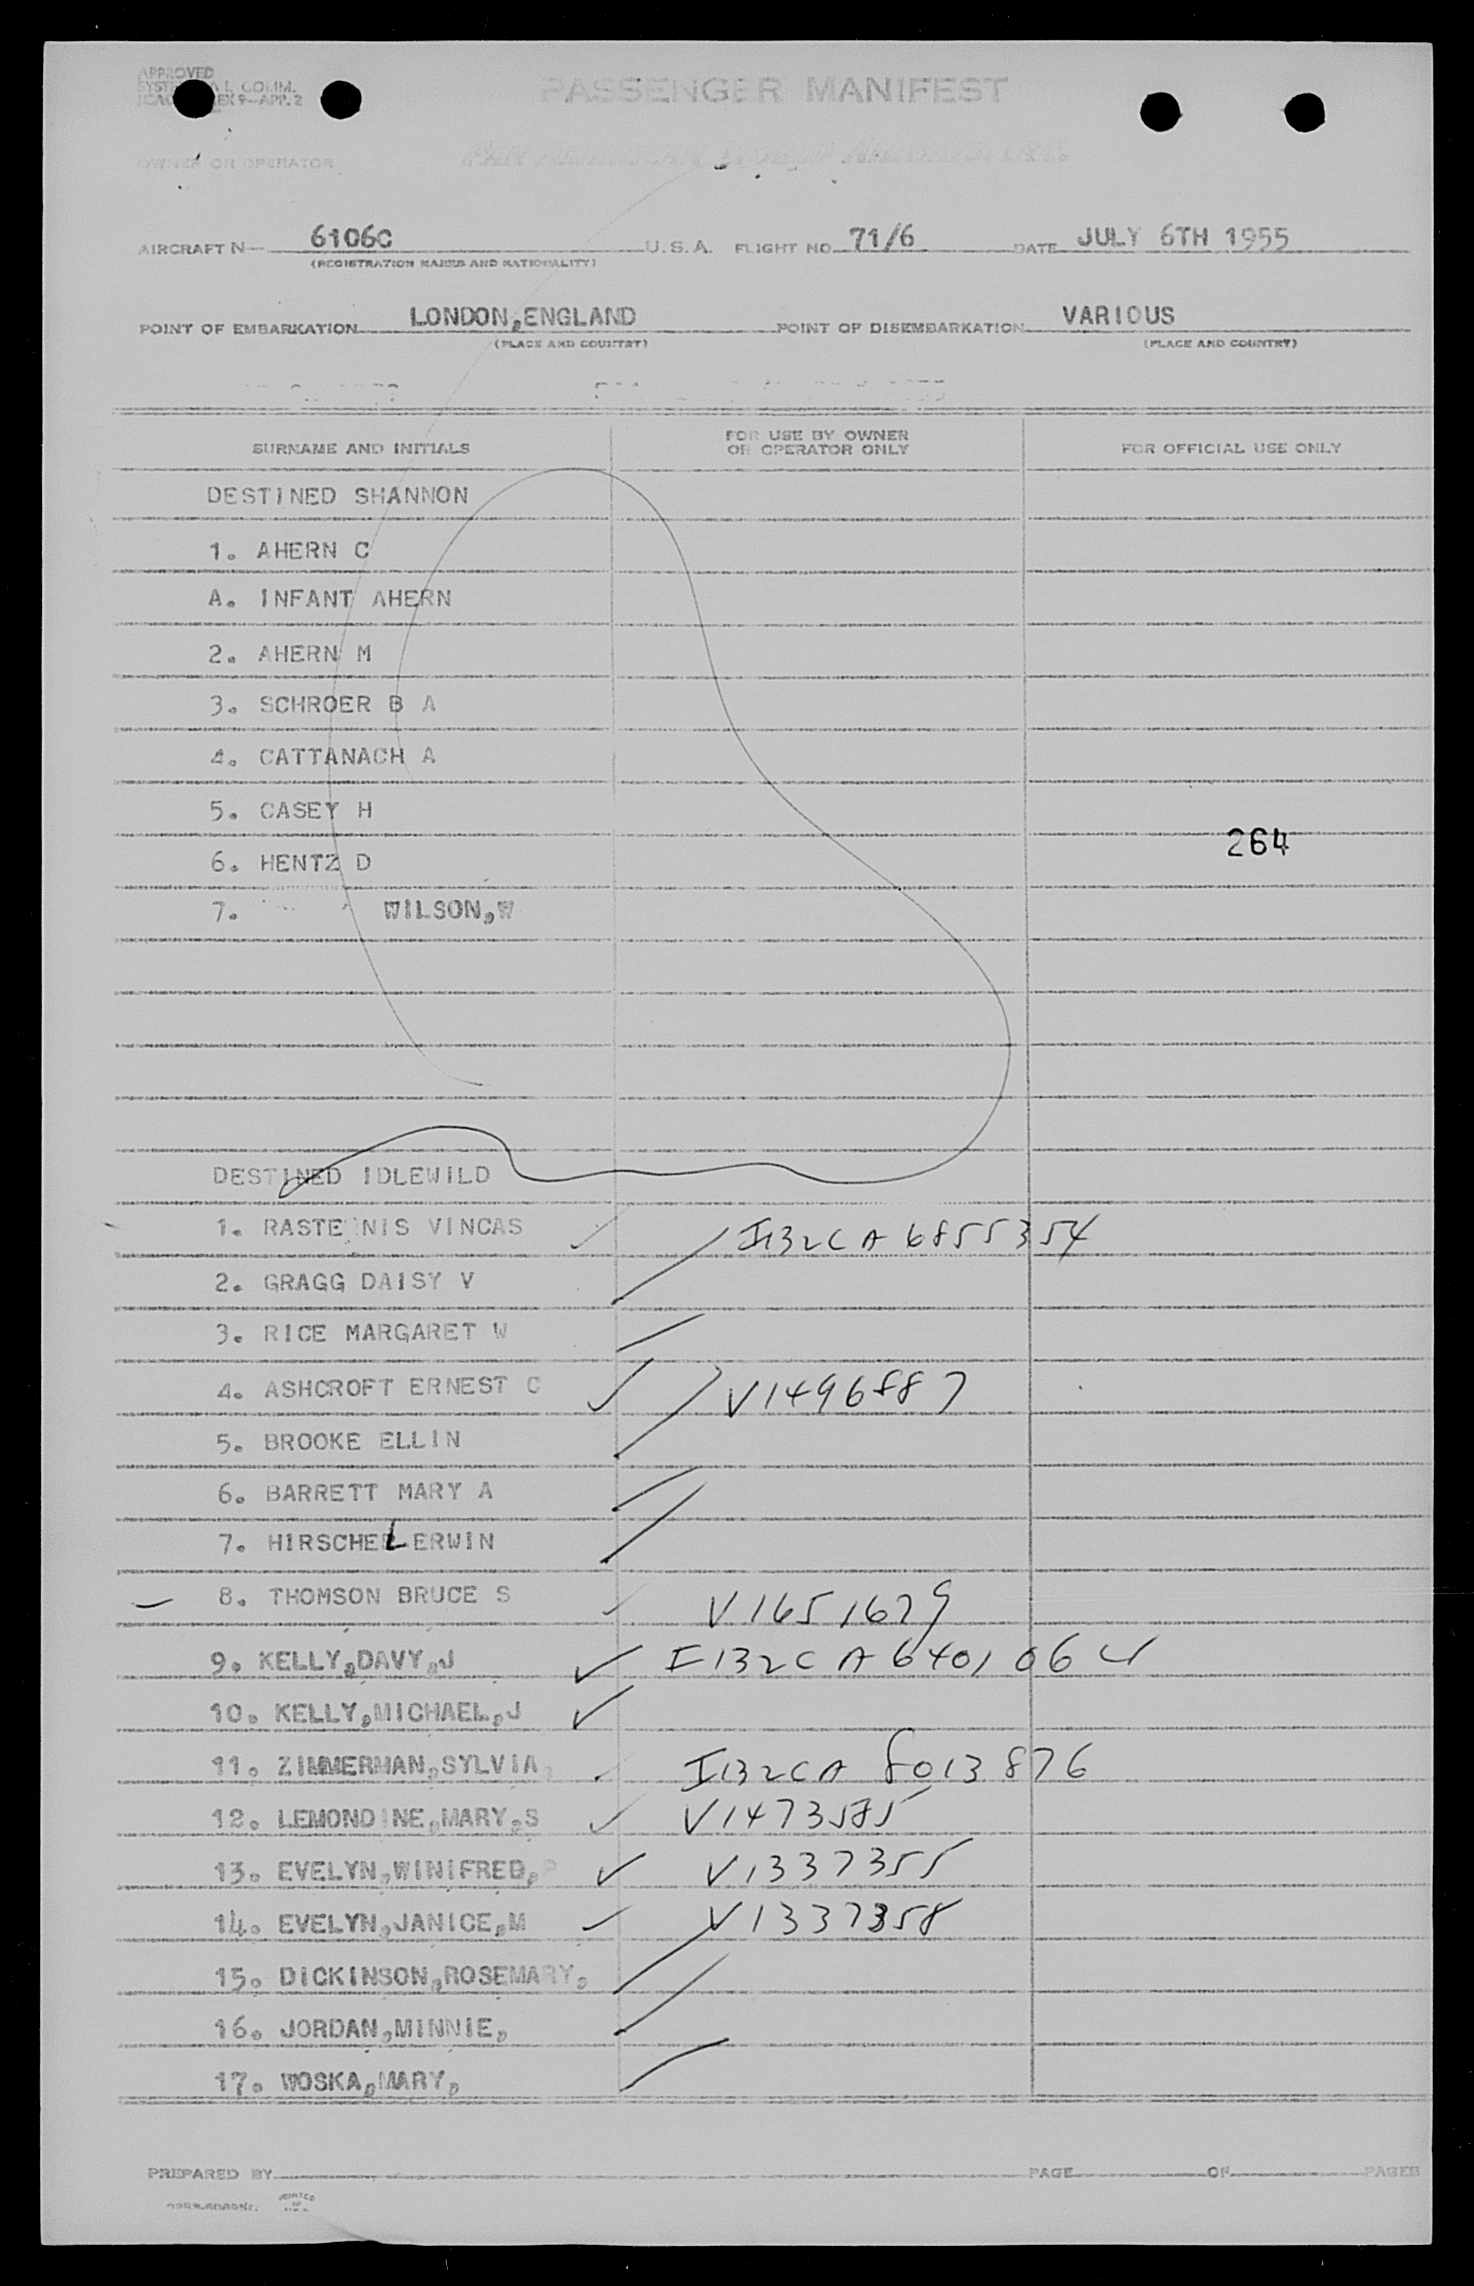 APPROVED
COMM.
9-APP. 2
PASSENGER MANIFEST
OWNER OR OPERATOR
AIRCRAFT N— 6106C U.S.A. FLIGHT NO. 71/6 DATE JULY 6TH 1955
(REGISTRATION MARKS AND NATIONALITY)
POINT OF EMBARKATION LONDON,ENGLAND POINT OF DISEMBARKATION VARIOUS
(PLACE AND COUNTRY) (PLACE AND COUNTRY)
SURNAME AND INITIALS FOR USE BY OWNER OR OPERATOR ONLY FOR OFFICIAL USE ONLY
DESTINED SHANNON
1. AHERN C
A. INFANT AHERN
2. AHERN M
3. SCHROER B A
4. CATTANACH A
5. CASEY H
264
6. HENTZ D
7. WILSON,W
DESTINED IDLEWILD
1. RASTENIS VINCAS I132CA 6855354
2. GRAGG DAISY V
3. RICE MARGARET W
4. ASHCROFT ERNEST C V1496887
5. BROOKE ELLIN
6. BARRETT MARY A
7. HIRSCHEL ERWIN
8. THOMSON BRUCE S V1651629
9. KELLY,DAVY,J I132CA 640106
10. KELLY,MICHAEL,J
11. ZIMMERMAN,SYLVIA, I132CA 8013876
12. LEMONDINE,MARY,S V1473585
13. EVELYN,WINIFRED, V1337355
14. EVELYN,JANICE,M V1337358
15. DICKINSON,ROSEMARY,
16. JORDAN,MINNIE,
17. WOSKA,MARY,
PREPARED BY PAGE OF PAGES
PRINTED